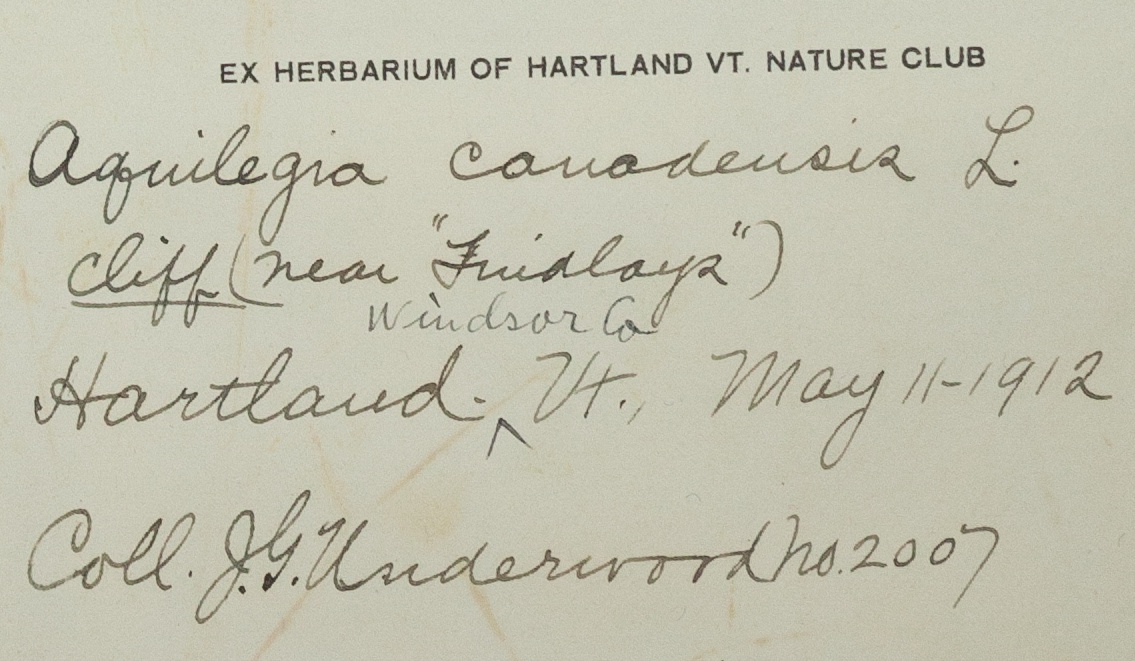 EX HERBARIUM OF HARTLAND VT. NATURE CLUB
Aquilegia canadensis L.
cliff (near "Findlays")
Windsor Co
Hartland. ^ Vt., May 11-1912
Coll. J.G. Underwood No. 2007